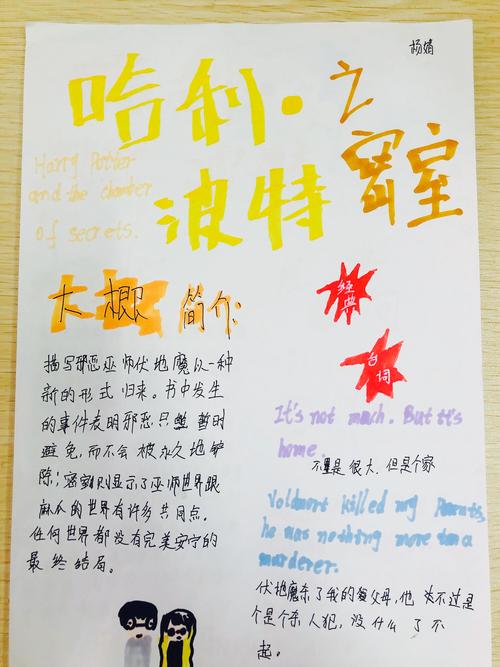 杨婧
哈利·
波特
之
密室
Harry Potter
and the chamber
of secrets.
大概 简介:
描写邪恶巫师伏地魔以一种
新的形式归来。书中发生
的事件表明邪恶只能暂时
避免,而不会被永久地铲
除;密室则显示了巫师世界跟
麻瓜的世界有许多共同点。
任何世界都没有完美安宁的
最终结局。
经典
台词
It's not much. But it's
home.
不是很大.但是个家
Voldmort killed my Parents,
he was nothing more than a
murderer.
伏地魔杀了我的父母,他 尖不过是
个是个杀人犯,没什么了不
起。